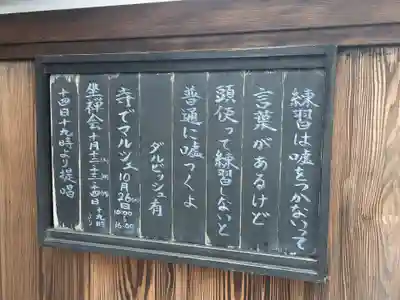 練習は嘘をつかないって
言葉があるけど
頭使って練習しないと
普通に嘘つくよ
ダルビッシュ有
寺でマルシェ10月26日10:00〜16:00
坐禅会十月十二・十三・十四日十九時より
十四日十九時より提唱